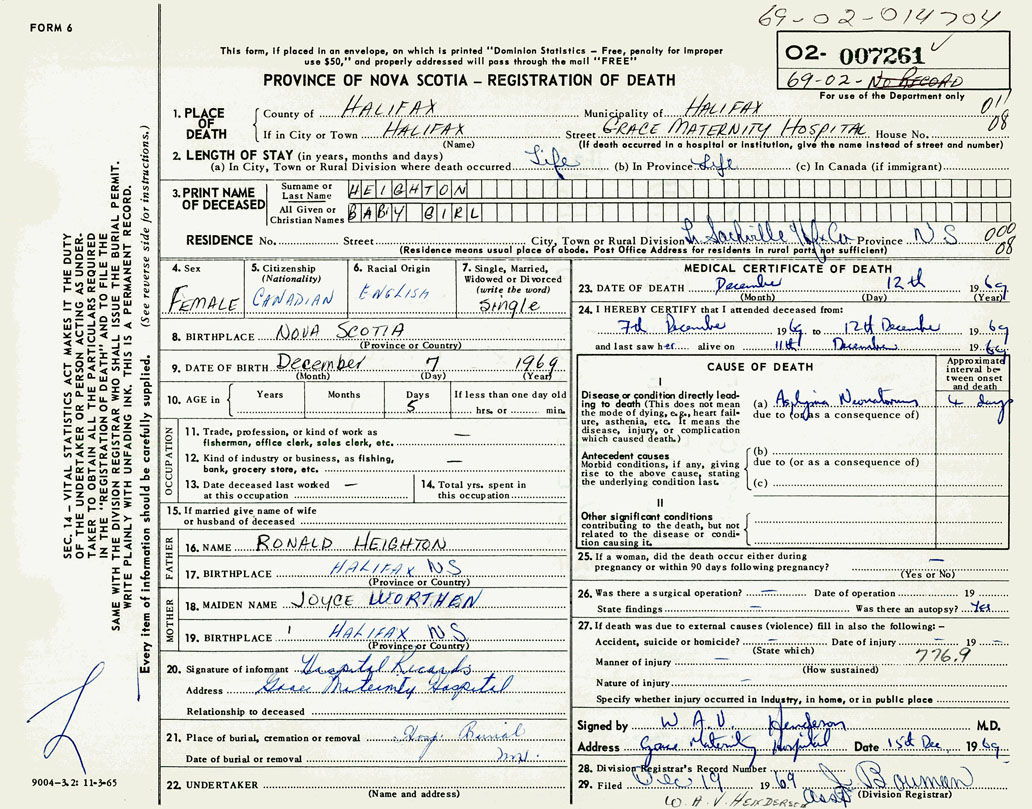 FORM 6
69-02-014704
This form, if placed in an envelope, on which is printed "Dominion Statistics – Free, penalty for improper
use $50," and properly addressed will pass through the mail "FREE"
02- 007261
69-02-No Record
For use of the Department only
PROVINCE OF NOVA SCOTIA – REGISTRATION OF DEATH
011
08
1. PLACE OF DEATH
County of HALIFAX Municipality of HALIFAX
If in City or Town HALIFAX Street GRACE MATERNITY HOSPITAL House No.
(Name) (If death occurred in a hospital or institution, give the name instead of street and number)
2. LENGTH OF STAY (in years, months and days)
(a) In City, Town or Rural Division where death occurred Life (b) In Province Life (c) In Canada (if immigrant)
3. PRINT NAME OF DECEASED
Surname or Last Name HEIGHTON
All Given or Christian Names BABY GIRL
RESIDENCE No. Street City, Town or Rural Division L. Sackville Hfx Co Province NS
000
08
(Residence means usual place of abode. Post Office Address for residents in rural parts not sufficient)
4. Sex
FEMALE
5. Citizenship
(Nationality)
CANADIAN
6. Racial Origin
ENGLISH
7. Single, Married,
Widowed or Divorced
(write the word)
Single
8. BIRTHPLACE NOVA SCOTIA
(Province or Country)
9. DATE OF BIRTH December 7 1969
(Month) (Day) (Year)
10. AGE in Years Months Days If less than one day old
5 hrs. or min.
OCCUPATION
11. Trade, profession, or kind of work as
fisherman, office clerk, sales clerk, etc. —
12. Kind of industry or business, as fishing,
bank, grocery store, etc. —
13. Date deceased last worked —
at this occupation
14. Total yrs. spent in
this occupation
15. If married give name of wife
or husband of deceased
FATHER
16. NAME RONALD HEIGHTON
17. BIRTHPLACE HALIFAX NS
(Province or Country)
MOTHER
18. MAIDEN NAME JOYCE WORTHEN
19. BIRTHPLACE HALIFAX NS
(Province or Country)
20. Signature of informant Hospital Records
Address Grace Maternity Hospital
Relationship to deceased
21. Place of burial, cremation or removal Hosp. Burial
Date of burial or removal
22. UNDERTAKER
(Name and address)
MEDICAL CERTIFICATE OF DEATH
23. DATE OF DEATH December 12th 1969
(Month) (Day) (Year)
24. I HEREBY CERTIFY that I attended deceased from:
7th December 1969 to 12th December 1969
and last saw her alive on 11th December 1969
CAUSE OF DEATH
Approximate
interval be-
tween onset
and death
I
Disease or condition directly lead-
ing to death (This does not mean
the mode of dying, e.g., heart fail-
ure, asthenia, etc. It means the
disease, injury, or complication
which caused death.)
(a) Asphyxia Neonatorum 4 days
due to (or as a consequence of)
Antecedent causes
Morbid conditions, if any, giving
rise to the above cause, stating
the underlying condition last.
(b)
due to (or as a consequence of)
(c)
II
Other significant conditions
contributing to the death, but not
related to the disease or condi-
tion causing it.
25. If a woman, did the death occur either during
pregnancy or within 90 days following pregnancy? —
(Yes or No)
26. Was there a surgical operation? — Date of operation 19
State findings — Was there an autopsy? Yes
27. If death was due to external causes (violence) fill in also the following: –
Accident, suicide or homicide? — Date of injury — 19 —
(State which) 776.9
Manner of injury —
(How sustained)
Nature of injury —
Specify whether injury occurred in Industry, in home, or in public place
Signed by W A V Henderson M.D.
Address Grace Maternity Hospital Date 15th Dec 1969
28. Division Registrar's Record Number
29. Filed Dec 19 1969 J Bouman
asst (Division Registrar)
W. A. V HENDERSO
SEC. 14 – VITAL STATISTICS ACT MAKES IT THE DUTY
OF THE UNDERTAKER OR PERSON ACTING AS UNDER-
TAKER TO OBTAIN ALL THE PARTICULARS REQUIRED
IN THE "REGISTRATION OF DEATH" AND TO FILE THE
SAME WITH THE DIVISION REGISTRAR WHO SHALL ISSUE THE BURIAL PERMIT.
WRITE PLAINLY WITH UNFADING INK. THIS IS A PERMANENT RECORD.
Every item of information should be carefully supplied. (See reverse side for instructions.)
9004–3.2: 11-3-65